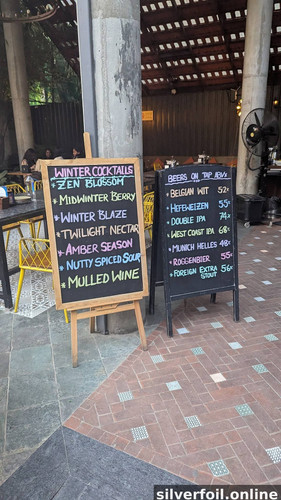 WINTER COCKTAILS
* ZEN BLOSSOM
* MIDWINTER BERRY
* WINTER BLAZE
* TWILIGHT NECTAR
* AMBER SEASON
* NUTTY SPICED SOUR
* MULLED WINE
BEERS ON TAP
* BELGIAN WIT
* HEFEWEIZEN
* DOUBLE IPA
* WEST COAST IPA
* MUNICH HELLES
* ROGGENBIER
* FOREIGN EXTRA
STOUT
silverfoil.online